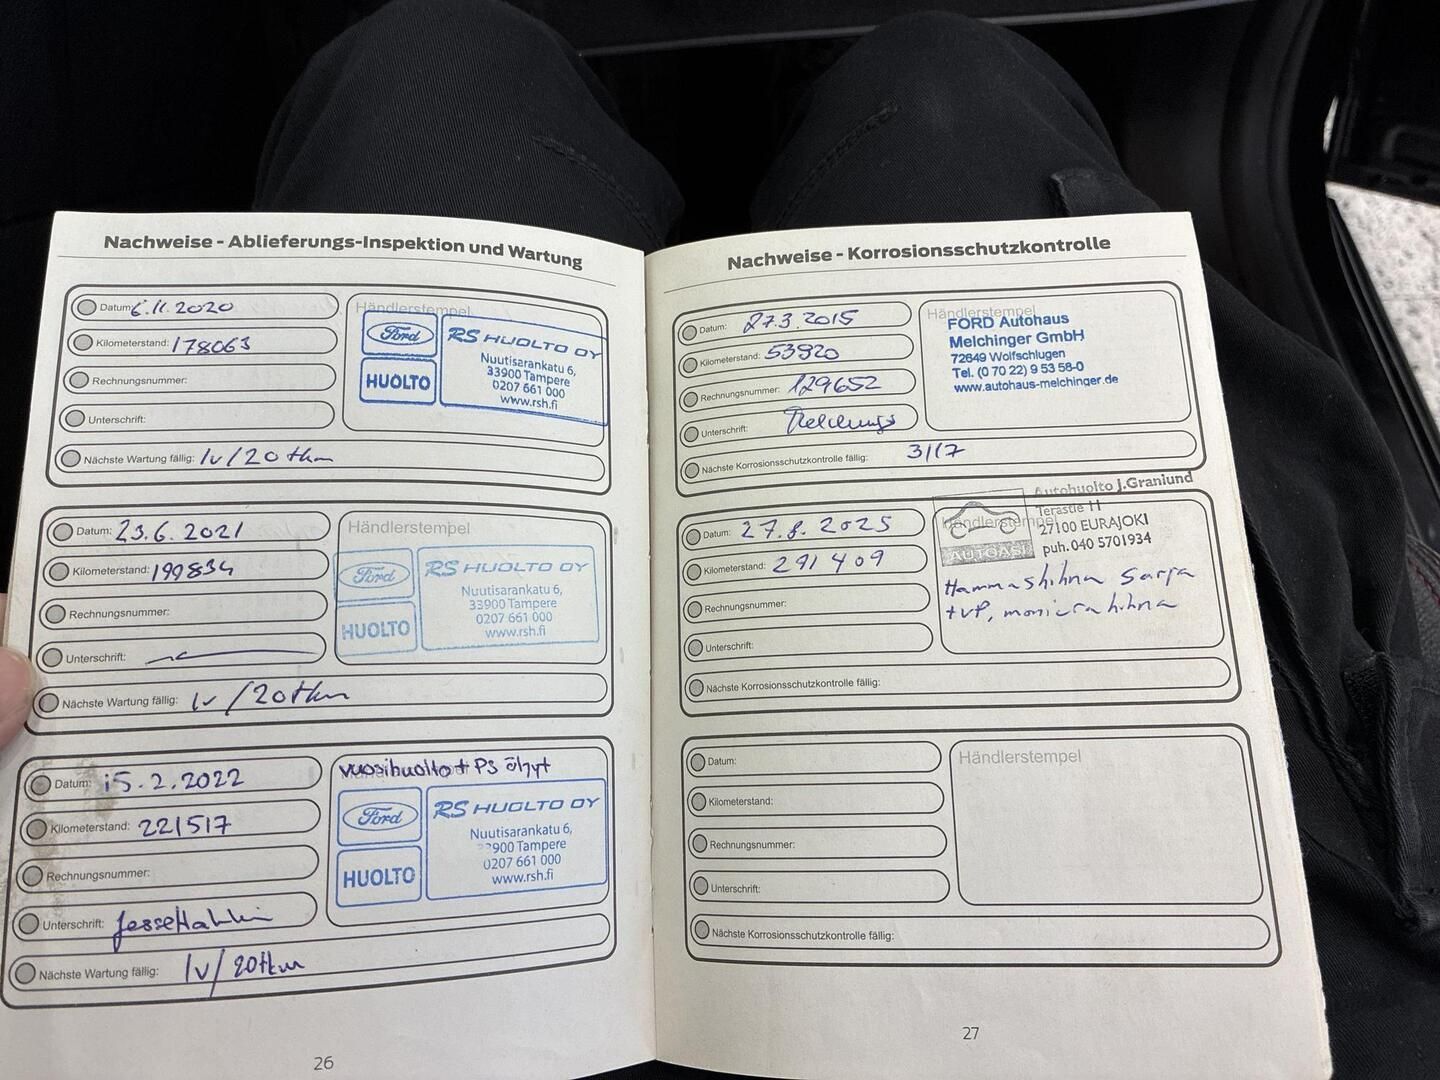 Nachweise - Ablieferungs-Inspektion und Wartung
Datum: 6.11.2020
Kilometerstand: 178063
Rechnungsnummer:
Unterschrift:
Nächste Wartung fällig: 1v/20 tkm
Händlerstempel
Ford
HUOLTO
RS HUOLTO OY
Nuutisarankatu 6,
33900 Tampere
0207 661 000
www.rsh.fi
Datum: 23.6.2021
Kilometerstand: 199834
Rechnungsnummer:
Unterschrift:
Nächste Wartung fällig: 1v/20tkm
Händlerstempel
Ford
HUOLTO
RS HUOLTO OY
Nuutisarankatu 6,
33900 Tampere
0207 661 000
www.rsh.fi
Datum: 15.2.2022
Kilometerstand: 221517
Rechnungsnummer:
Unterschrift:
Nächste Wartung fällig: 1v/20tkm
vuosihuolto + PS öljyt
Ford
HUOLTO
RS HUOLTO OY
Nuutisarankatu 6,
900 Tampere
0207 661 000
www.rsh.fi
26
Nachweise - Korrosionsschutzkontrolle
Datum: 27.3.2015
Kilometerstand: 53920
Rechnungsnummer: 129652
Unterschrift:
Nächste Korrosionsschutzkontrolle fällig: 3/17
Händlerstempel
FORD Autohaus
Melchinger GmbH
72649 Wolfschlugen
Tel. (0 70 22) 9 53 58-0
www.autohaus-melchinger.de
Datum: 27.8.2025
Kilometerstand: 291409
Rechnungsnummer:
Unterschrift:
Nächste Korrosionsschutzkontrolle fällig:
Händlerstempel
Autohuolto J.Granlund
Terästie 11
27100 EURAJOKI
puh. 040 5701934
AUTOASI
Hammashihna sarja
+vP, monirahihna
Datum:
Kilometerstand:
Rechnungsnummer:
Unterschrift:
Nächste Korrosionsschutzkontrolle fällig:
Händlerstempel
27